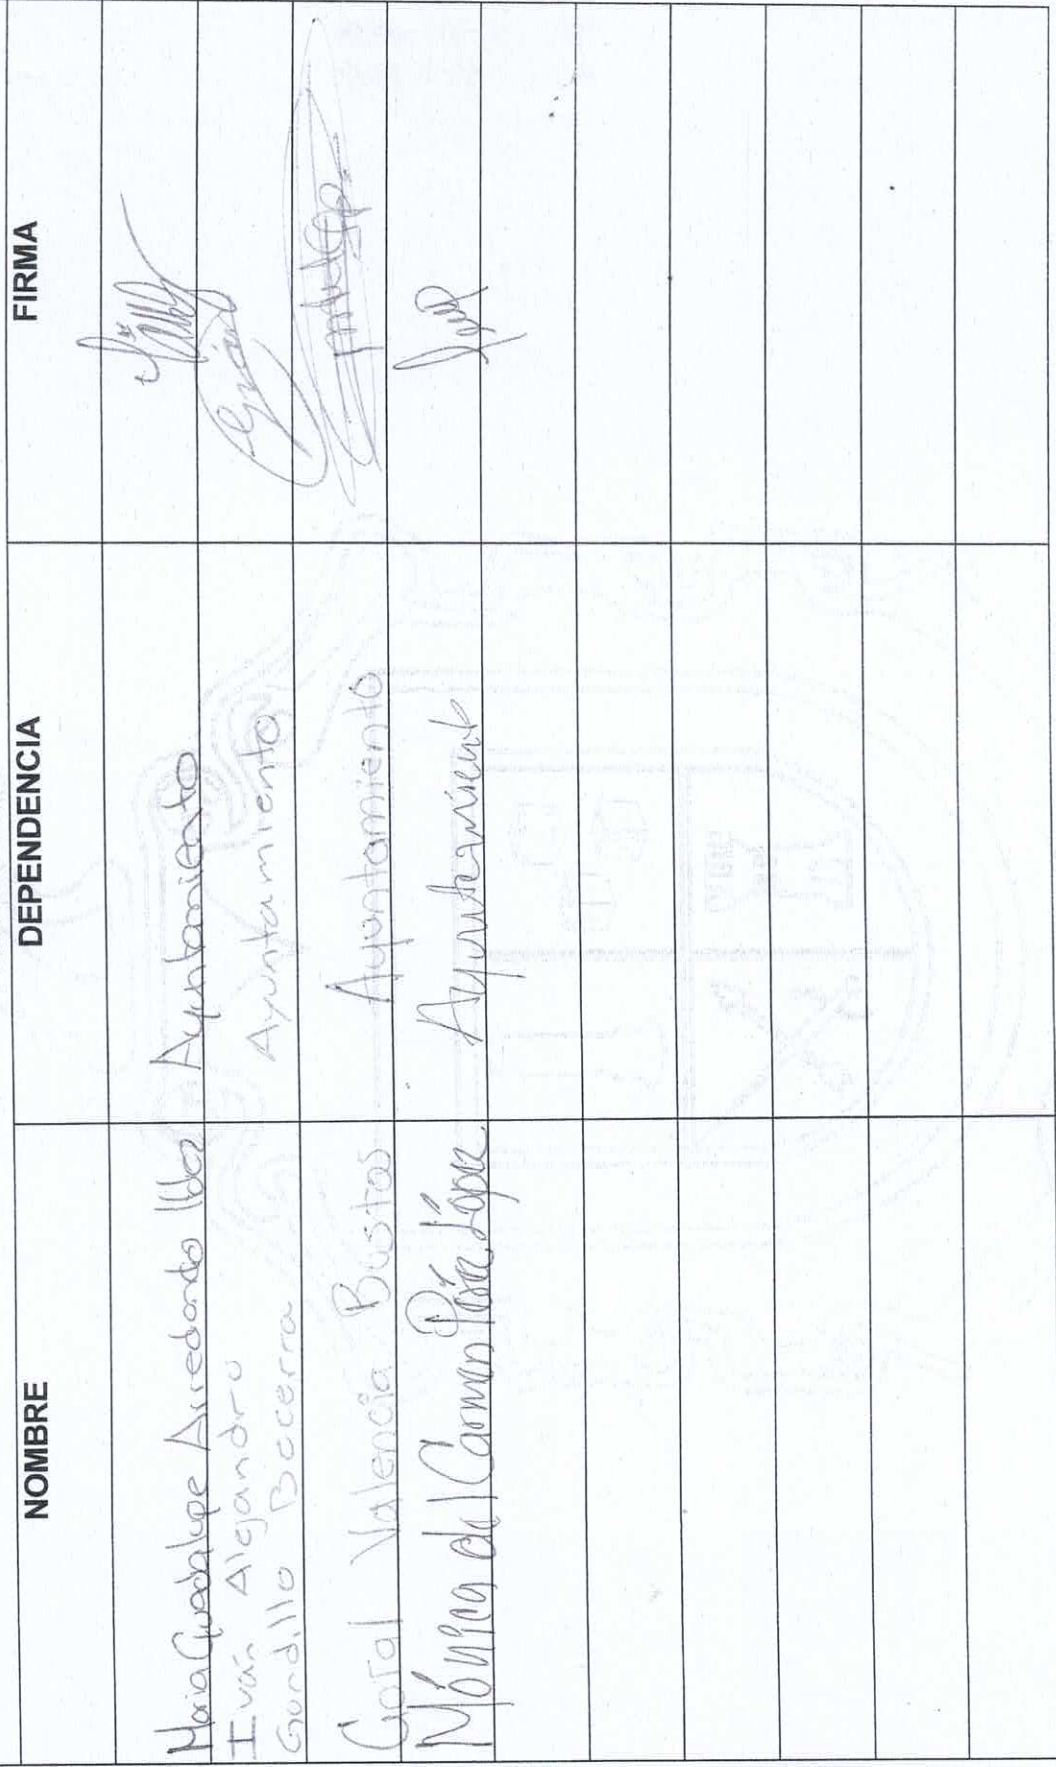 NOMBRE DEPENDENCIA FIRMA
Maria Guadalupe Arredondo Ayuntamiento
Iván Alejandro
Gordillo Becerra Ayuntamiento
Coral Valencia Bustos Ayuntamiento
Mónica del Carmen López Ayuntamiento